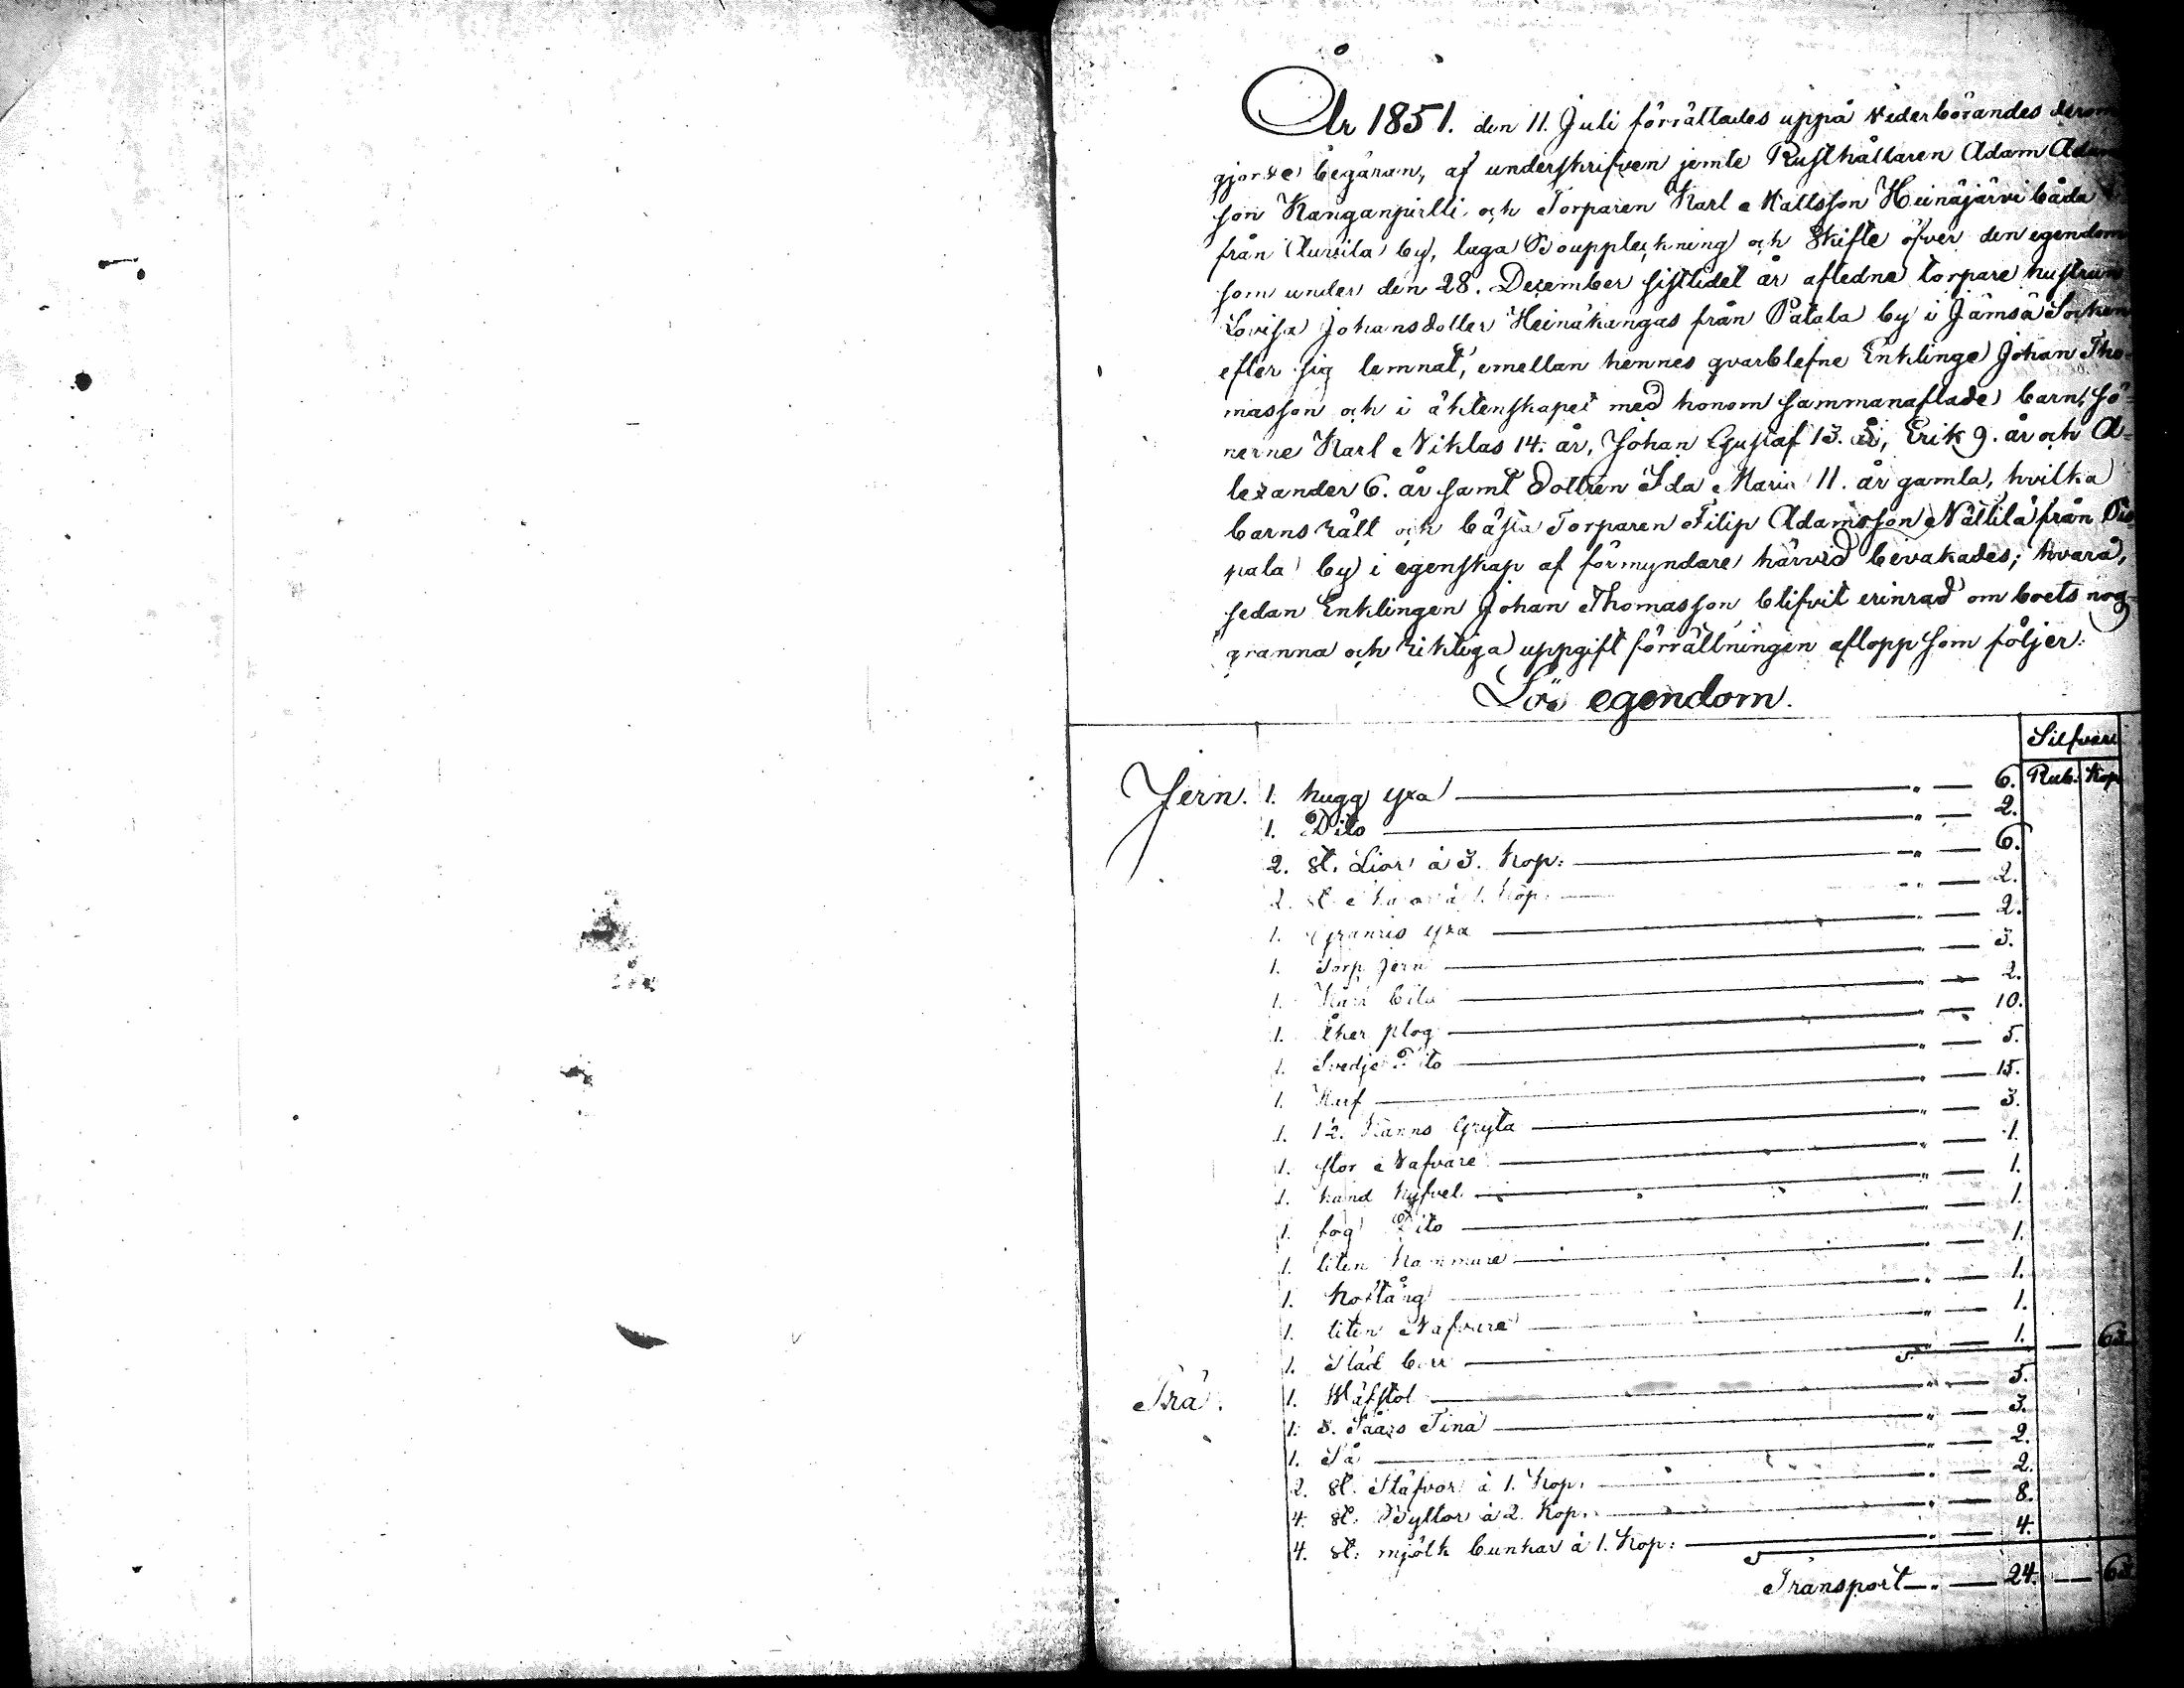 År 1851. den 11. Juli förrättades uppå vederbörandes derom
gjorde begäran, af underskrifven jemte Rusthållaren Adam Adam
son Kanganpirtti och Torparen Karl Mattsson Heinäjärvi båda
från by, laga Boupptekning och Skifte öfver den egendom
som under den 28. December sistledet år afledne torpare hustrun
Lovisa Johansdotter Heinäkangas från Patala by i Jämsä Socken
efter sig lemnat, emellan hennes qvarblefne Enklinge Johan Tho-
masson och i äktenskapet med honom sammanaflade barn, sö-
nerne Karl Niklas 14. år, Johan Gustaf 13. år, Erik 9. år och A-
lexander 6. år samt dottren Ida Maria 11. år gamla, hvilka
barns rätt och bästa Torparen Filip Adamsson Nättilä från
pala by i egenskap af förmyndare härvid bevakades; hvarå,
sedan Enklingen Johan Thomasson blifvit erinrad om boets nog-
granna och riktiga uppgift förrättningen aflopp som följer:
Lös egendom.
Silfver
Rub. Kop
Jern. 1. hugg yxa — " — 6.
1. Dito — " — 2.
2. st. Liar à 3. Kop: — " — 6.
2. st. à 1. Kop: — " — 2.
1. Granris yxa — " — 2.
1. Torp Jern — " — 3.
1. — " — 2.
1. Åker plog — " — 10.
1. Svedje Dito — " — 5.
1. Harf — " — 15.
1. 12. Kanns Gryta — " — 3.
1. stor Nafvare — " — 1.
1. hand hyfvel — " — 1.
1. fog Dito — " — 1.
1. liten Hammare — " — 1.
1. Hoftång — " — 1.
1. liten Nafvare — " — 1.
1. Städ — " — 1. — 63
Trä. 1. Wäfstol — " — 5.
1. 3. Såårs Tina — " — 3.
1. Så — " — 2.
2. st. Stäfvor à 1. Kop: — " — 2.
4. st. Byttor à 2. Kop: — " — 8.
4. st: mjölk bunkar à 1. Kop: — " — 4.
Transport — " — 24. — 63